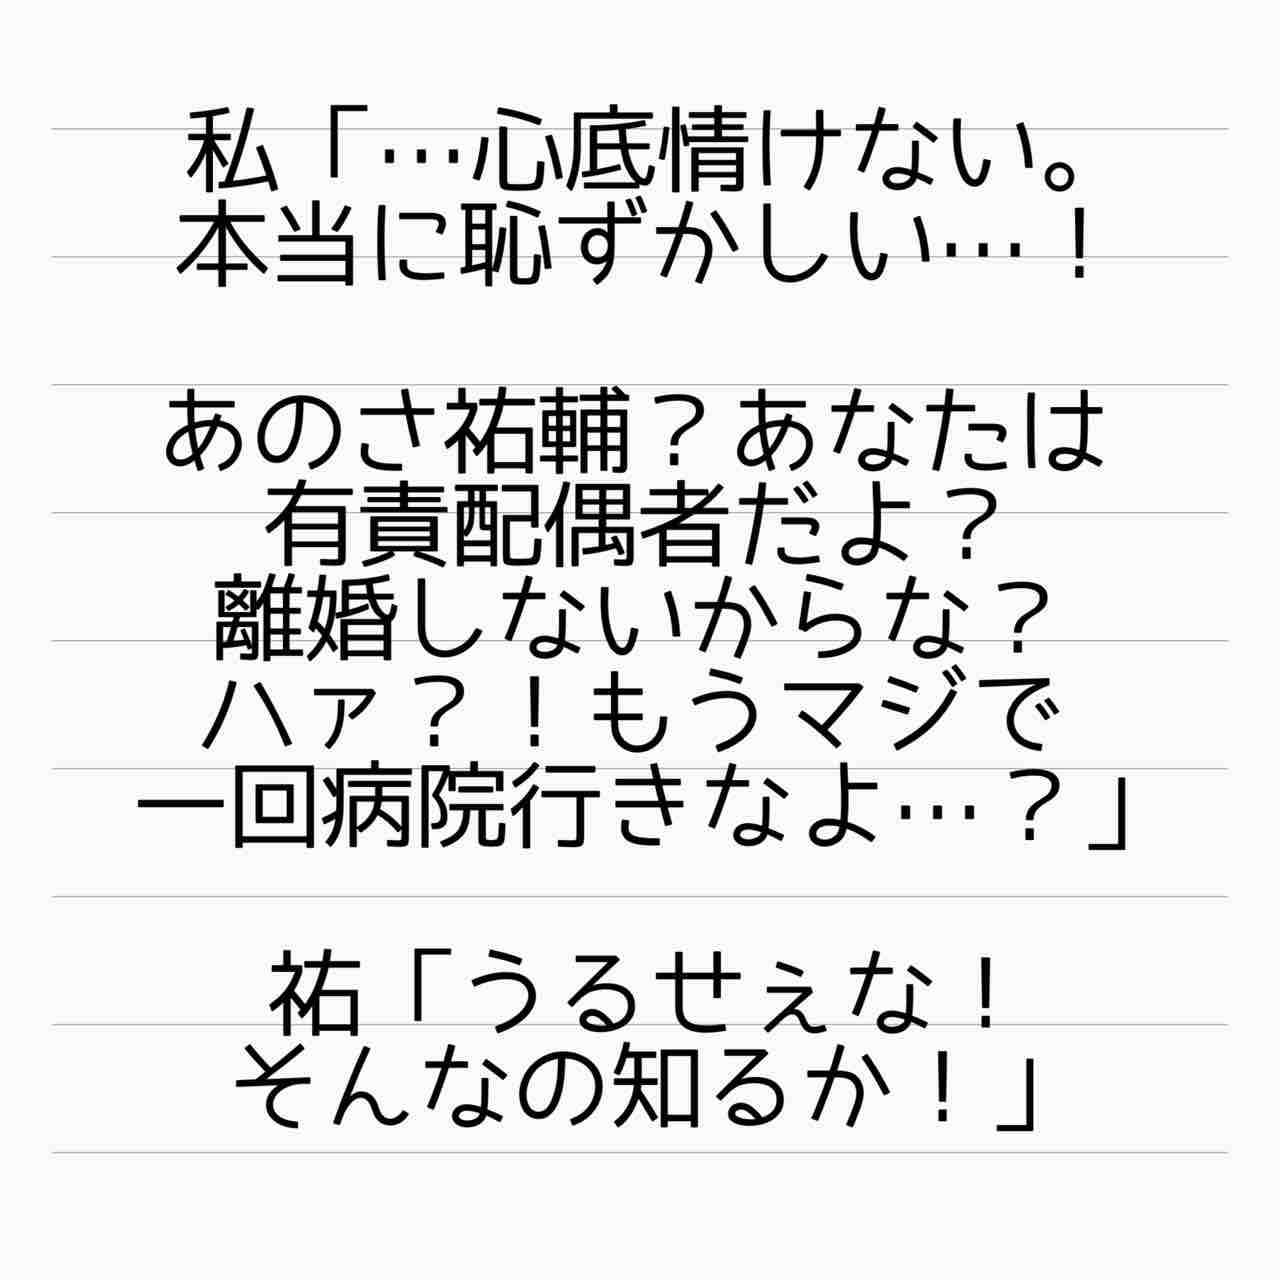 私「…心底情けない。
本当に恥ずかしい…！
あのさ祐輔？あなたは
有責配偶者だよ？
離婚しないからな？
ハァ？！もうマジで
一回病院行きなよ…？」
祐「うるせぇな！
そんなの知るか！」